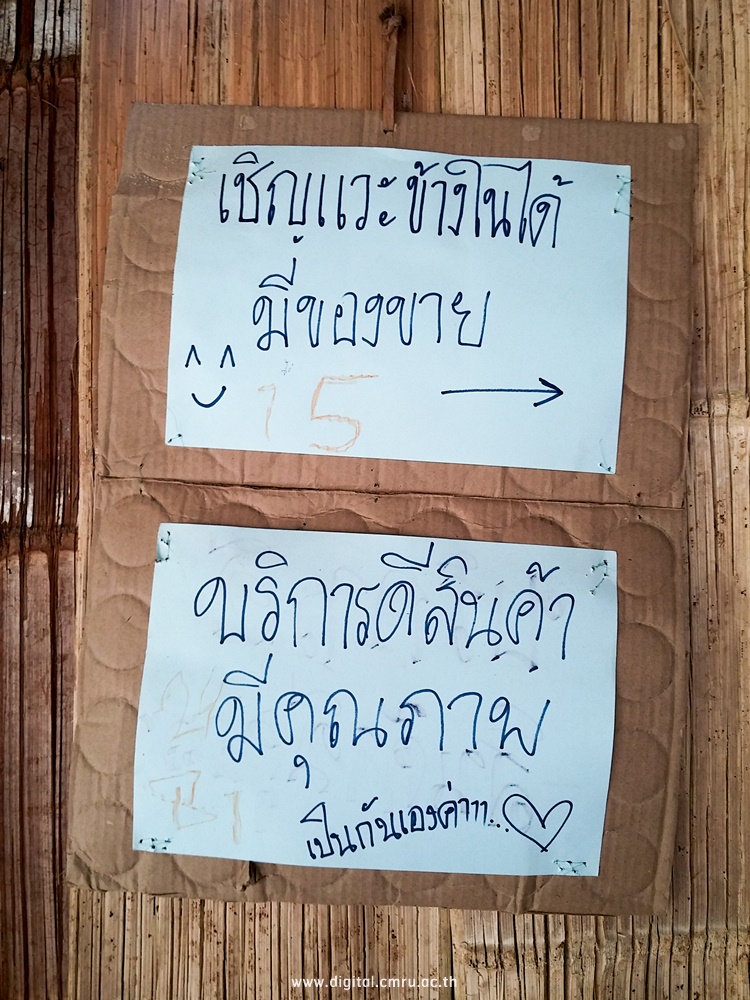 เชิญแวะข้างในได้
มีของขาย
15
บริการดีสินค้า
มีคุณภาพ
เป็นกันเองค่าาา...
www.digital.cmru.ac.th